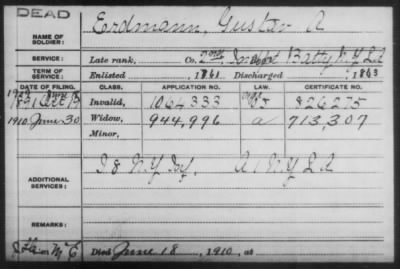 DEAD
NAME OF SOLDIER: Erdmann, Gustav A
SERVICE: Late rank, Co. 2nd Indpt Batty N.Y. L A
TERM OF SERVICE: Enlisted 1861 Discharged 1863
DATE OF FILING. CLASS. APPLICATION NO. LAW. CERTIFICATE NO.
1891 Oct 15 Invalid, 1064333 826275
1910 June 30 Widow, 944,996 a 713,307
Minor,
ADDITIONAL SERVICES: I 8 N.Y. Inf. A 1 N.Y. L A
REMARKS:
Died June 18, 1910, at